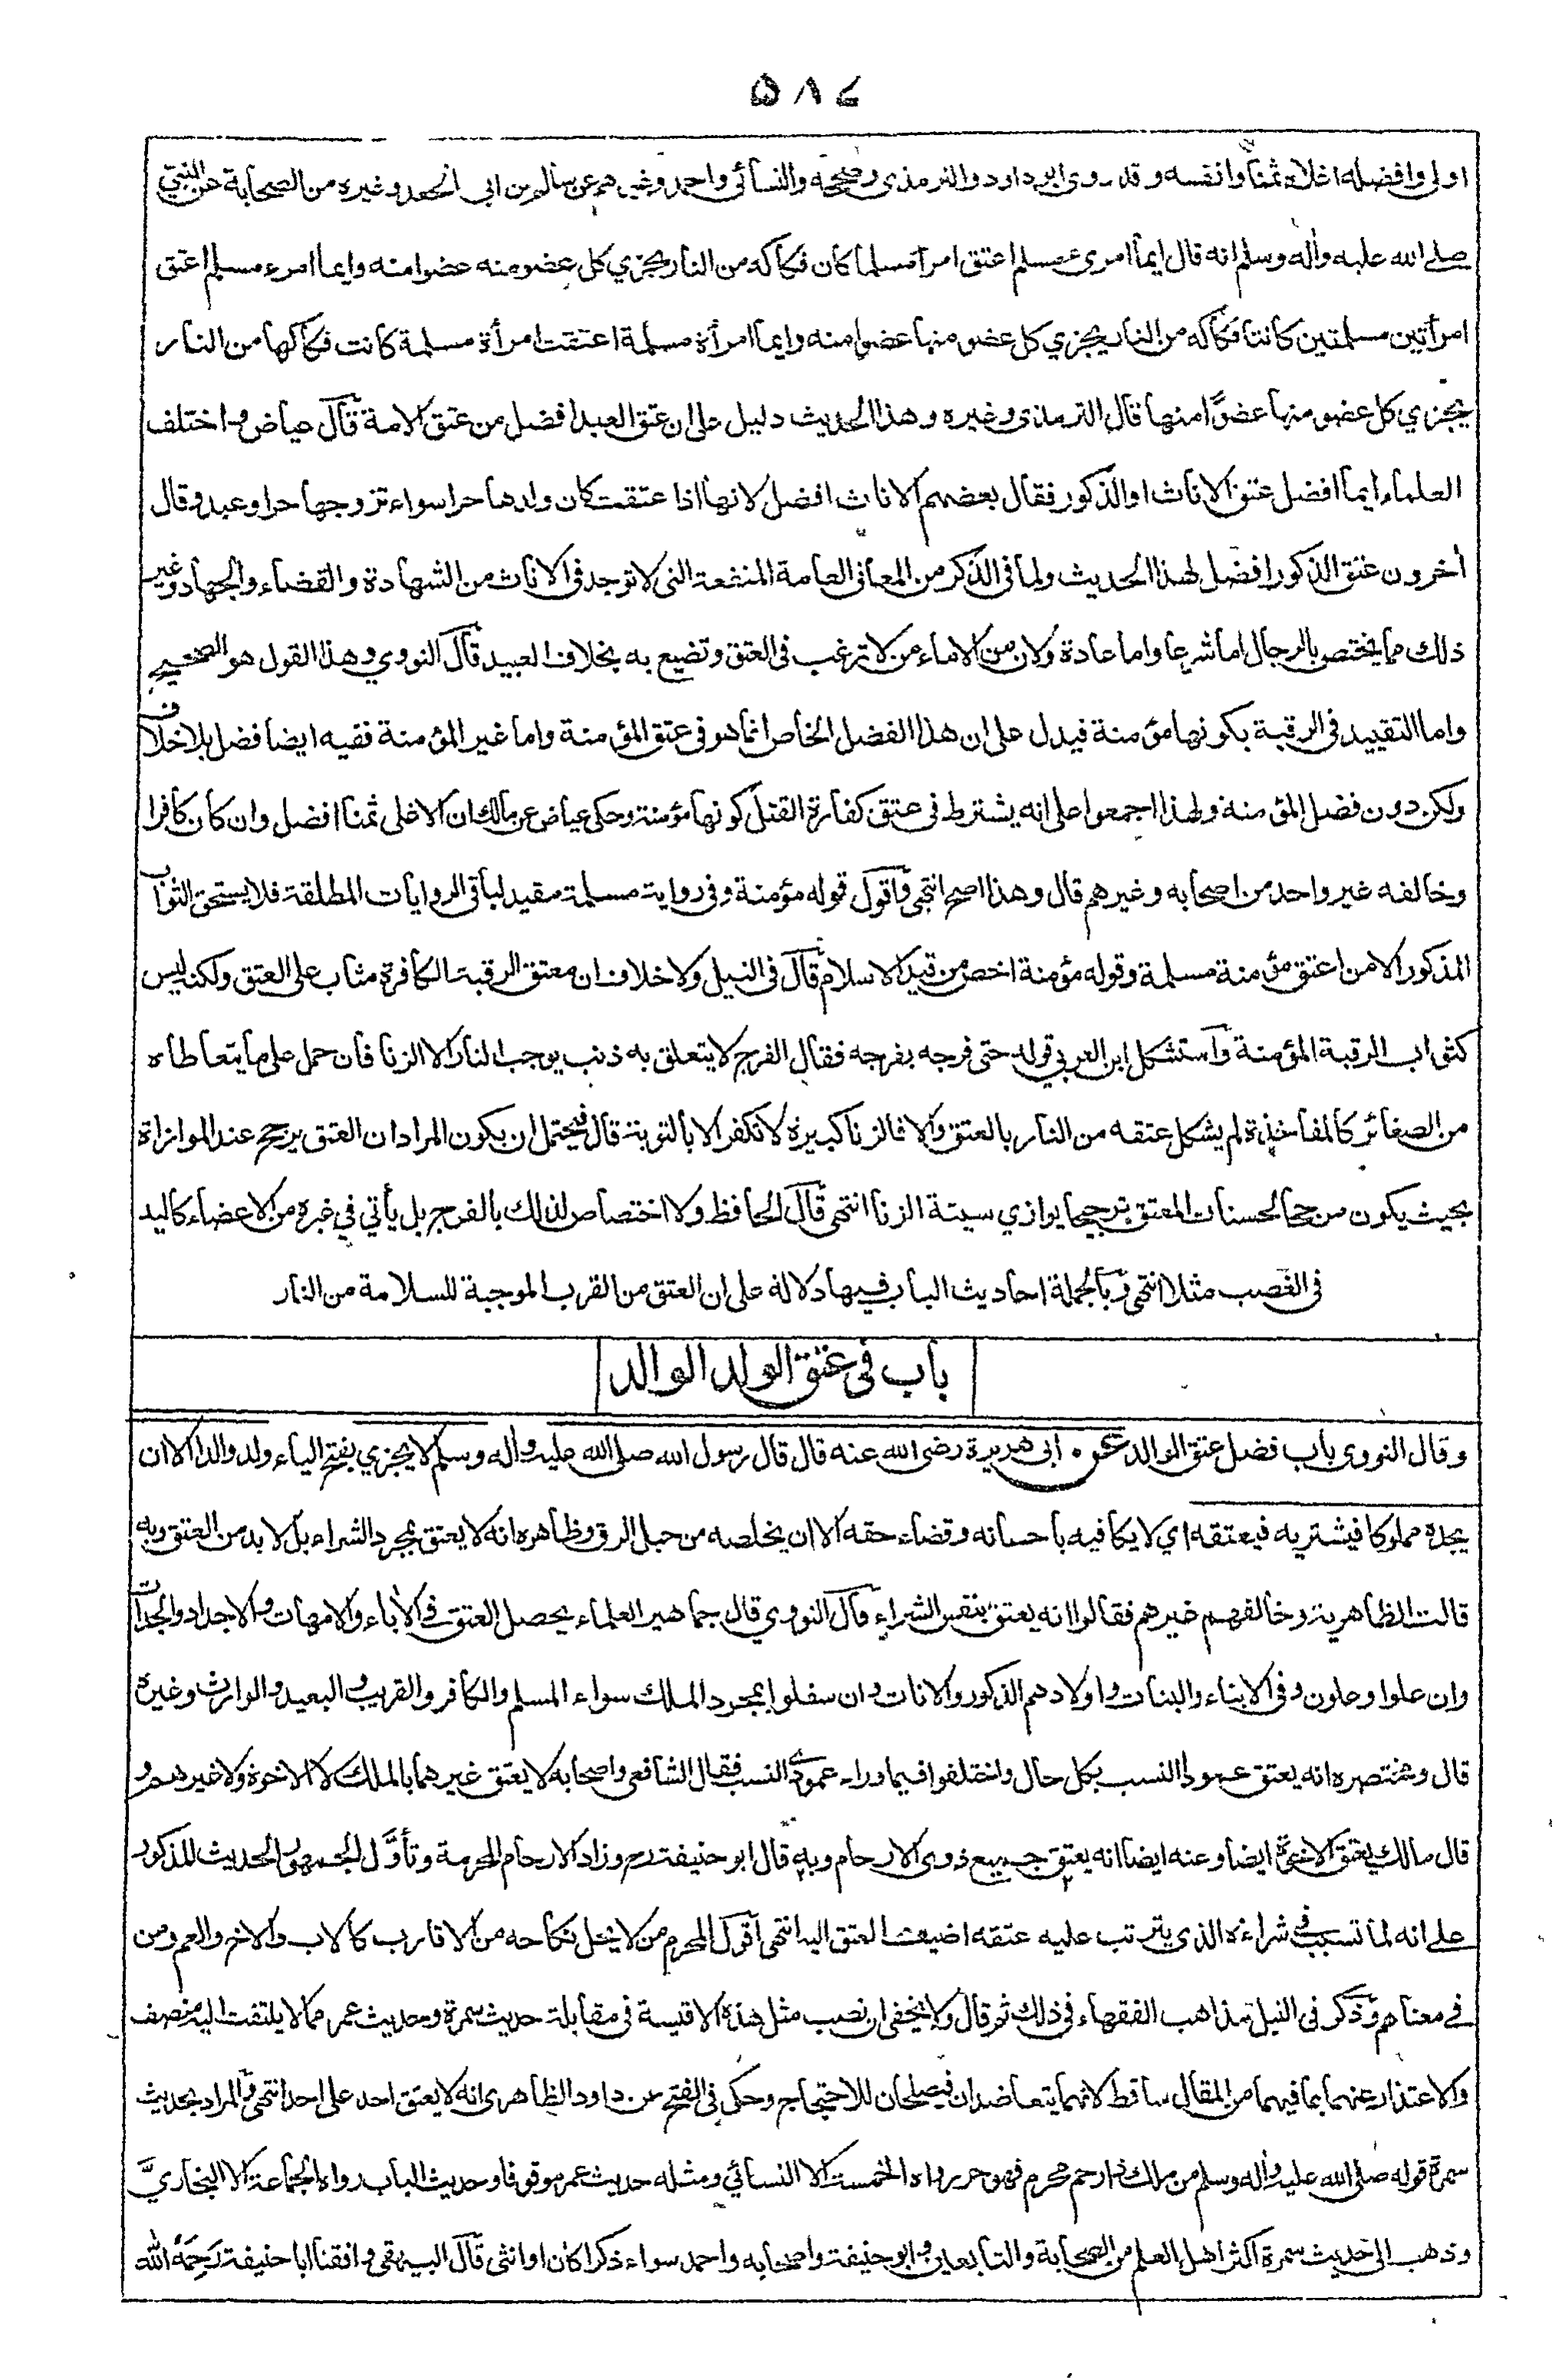 ٥٨٤
اولى وافضله اغلاه ثمنا وانفسه وقد روى ابو داود والترمذي وصححه والنسائي واحمد وغيرهم عن سالم بن ابى الجعد وغيره من الصحابة عن النبي
صلى الله عليه وأله وسلم انه قال ايما امرئ مسلم اعتق امرأ مسلما كان فكاكه من النار يجزي كل عضو منه عضوا منه وايما امرء مسلم اعتق
امرأتين مسلمتين كانتا فكاكه من النار يجزي كل عضو منها عضوا منه وايما امرأة مسلمة اعتقت امرأة مسلمة كانت فكاكها من النار
يجزي كل عضو منها عضوًا منها قال الترمذى وغيره وهذا الحديث دليل على ان عتق العبد افضل من عتق الامة قال عياض واختلف
العلماء ايما افضل عتق الاناث او الذكور فقال بعضهم الاناث افضل لانها اذا عتقت كان ولدها حرا سواء تزوجها حر او عبد وقال
أخرون عتق الذكور افضل لهذا الحديث ولما في الذكر من المعاني العامة المنفعة التى لا توجد فى الاناث من الشهادة والقضاء والجهاد وغير
ذلك مما يختص بالرجال اما شرعا واما عادة ولان من الاماء من لا ترغب فى العتق وتضيع به بخلاف العبيد قال النووي وهذا القول هو الصحيح
واما التقييد فى الرقبة بكونها مؤمنة فيدل على ان هذا الفضل الخاص انما هو فى عتق المؤمنة واما غير المؤمنة ففيه ايضا فضل بلا خلاف
ولكن دون فضل المؤمنة ولهذا اجمعوا على انه يشترط فى عتق كفارة القتل كونها مؤمنة وحكى عياض عن مالك ان الاغلى ثمنا افضل وان كان كافرا
وخالفه غير واحد من اصحابه وغيرهم قال وهذا اصح انتهى واقول قوله مؤمنة وفى رواية مسلمة مقيد لباقى الروايات المطلقة فلا يستحق الثواب
المذكور الا من اعتق مؤمنة مسلمة وقوله مؤمنة اخص من قيد الاسلام قال فى النيل ولا خلاف ان معتق الرقبة الكافرة مثاب على العتق ولكنه ليس
كثواب الرقبة المؤمنة واستشكل ابن العربي قوله حتى فرجه بفرجه فقال الفرج لا يتعلق به ذنب يوجب النار الا الزنا فان حمل على ما يتعاطاه
من الصغائر كالمفاخذة لم يشكل عتقه من النار بالعتق والا فالزنا كبيرة لا تكفر الا بالتوبة قال فيحتمل ان يكون المراد ان العتق يرجح عند الموازاة
بحيث يكون مرجحا لحسنات المعتق ترجيحا يوازي سيئة الزنا انتهى قال الحافظ ولا اختصاص لذلك بالفرج بل يأتي في غيره من الاعضاء كاليد
فى الغصب مثلا انتهى وبالجملة احاديث الباب فيها دلالة على ان العتق من القرب الموجبة للسلامة من النار
باب فى عتق الولد الوالد
وقال النووي باب فضل عتق الوالد عن ابى هريرة رضى الله عنه قال قال رسول الله صلى الله عليه وأله وسلم لا يجزي بفتح الياء ولد والدا الا ان
يجده مملوكا فيشتريه فيعتقه اي لا يكافيه باحسانه وقضاء حقه الا ان يخلصه من حبل الرق وظاهره انه لا يعتق بمجرد الشراء بل لا بد من العتق وبه
قالت الظاهرية وخالفهم غيرهم فقالوا انه يعتق بنفس الشراء قال النووي قال جماهير العلماء يحصل العتق فى الأباء والامهات والاجداد والجدات
وان علوا وعلون وفى الابناء والبنات واولادهم الذكور والاناث وان سفلوا بمجرد الملك سواء المسلم والكافر والقريب والبعيد والوارث وغيره
قال ومختصره انه يعتق عمودا النسب بكل حال واختلفوا فيما وراء عمودي النسب فقال الشافعى واصحابه لا يعتق غيرهما بالملك لا الاخوة ولا غيرهم و
قال مالك يعتق الاخوة ايضا وعنه ايضا انه يعتق جميع ذوى الارحام وبه قال ابو حنيفة رح وزاد الارحام المحرمة وتأوَّل الجمهور الحديث المذكور
على انه لما تسبب فى شراءه الذى يترتب عليه عتقه اضيف العتق اليه انتهى اقول المحرم من لا يحل نكاحه من الاقارب كالاب والاخ والعم ومن
في معناهم وذكر فى النيل مذاهب الفقهاء فى ذلك ثم قال ولا يخفى ان نصب مثل هذه الاقيسة فى مقابلة حديث سمرة وحديث عمر مما لا يلتفت اليه منصف
والاعتذار عنهما بما فيهما من المقال ساقط لانهما يتعاضدان فيصلحان للاحتجاج وحكى فى الفتح عن داود الظاهرى انه لا يعتق احد على احد انتهى والمراد بحديث
سمرة قوله صلى الله عليه وأله وسلم من ملك ذا رحم محرم فهو حر رواه الخمسة الا النسائي ومثله حديث عمر موقوفا وحديث الباب رواه الجماعة الا البخاريَّ
وذهب الى حديث سمرة اكثر اهل العلم من الصحابة والتابعين وابو حنيفة واصحابه واحمد سواء ذكرا كان او انثى قال البيهقى وافقنا ابا حنيفة رَحِمَهُ الله